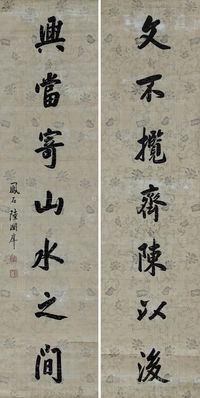 文不攬齊陳以後
興當寄山水之間
鳳石陸潤庠